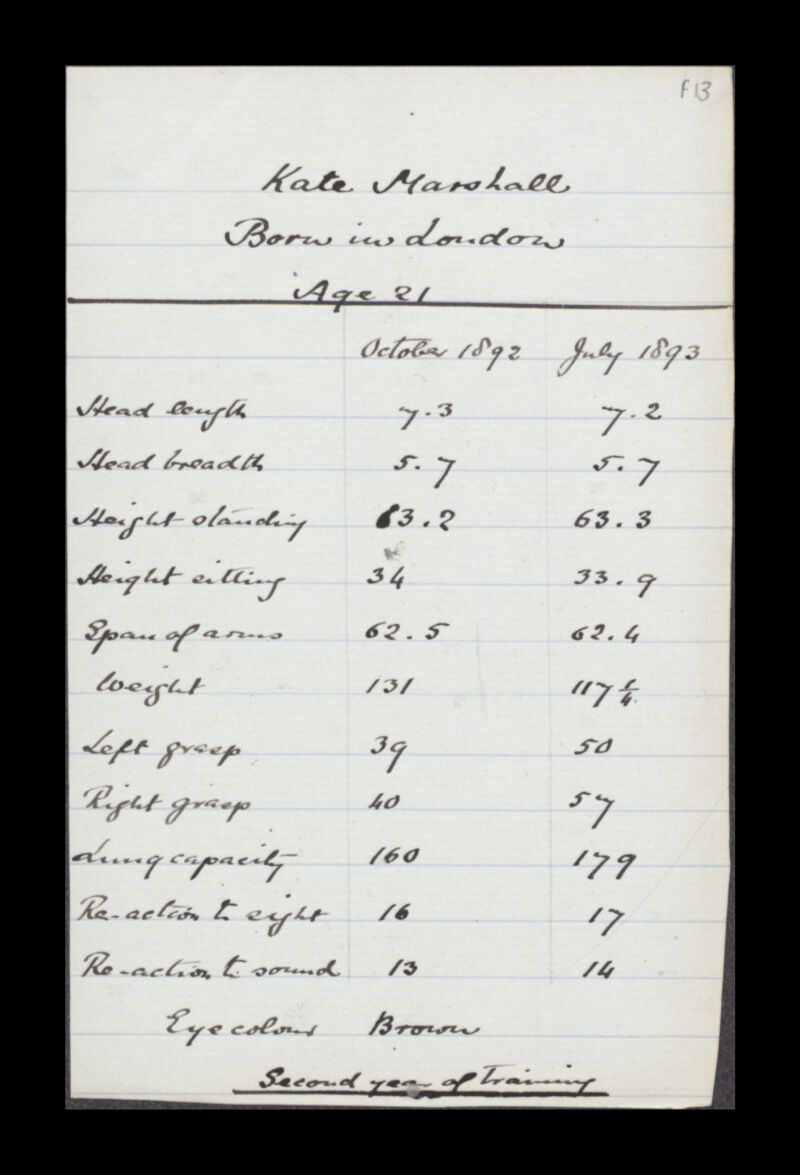 F13
Kate Marshall
Born in London
Age 21
October 1892 July 1893
Head length 7.3 7.2
Head breadth 5.7 5.7
Height standing 63.2 63.3
Height sitting 34 33.9
Span of arms 62.5 62.4
Weight 131 117 1/4
Left grasp 39 50
Right grasp 40 57
Lung capacity 160 179
Re-action to sight 16 17
Re-action to sound 13 14
Eye colour Brown
Second year of Training